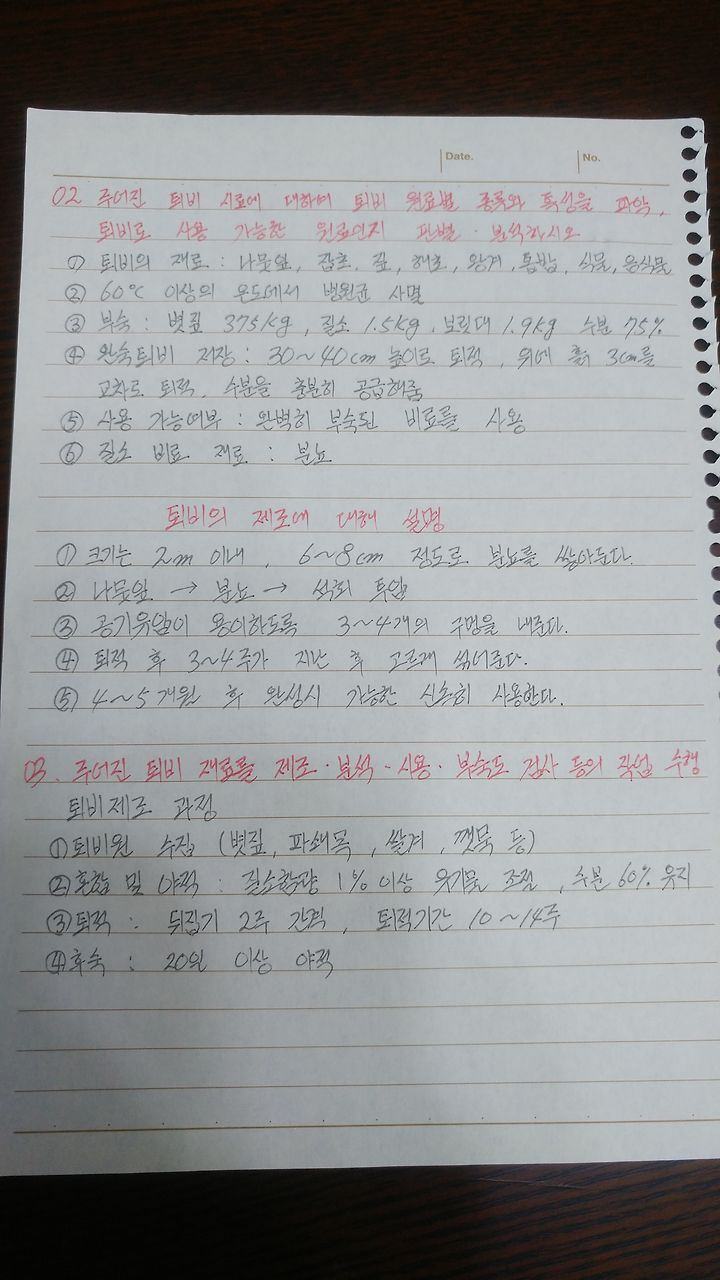 Date.
No.
02 주어진 퇴비 시료에 대하여 퇴비 원료별 종류와 특성을 파악,
퇴비로 사용 가능한 원료인지 판별·분석하시오
① 퇴비의 재료 : 나뭇잎, 잡초, 짚, 해초, 왕겨, 톱밥, 식물, 음식물
② 60℃ 이상의 온도에서 병원균 사멸
③ 부숙 : 볏짚 375kg, 질소 1.5kg, 보릿대 1.9kg 수분 75%
④ 완숙퇴비 저장 : 30~40cm 높이로 퇴적, 위에 흙 3cm를
교차로 퇴적, 수분을 충분히 공급해줌
⑤ 사용 가능여부 : 완벽히 부숙된 비료를 사용
⑥ 질소 비료 재료 : 분뇨
퇴비의 제조에 대해 설명
① 크기는 2m 이내, 6~8cm 정도로 분뇨를 쌓아둔다.
② 나뭇잎 → 분뇨 → 석회 투입
③ 공기유입이 용이하도록 3~4개의 구멍을 내준다.
④ 퇴적 후 3~4주가 지난 후 고르게 섞어준다.
⑤ 4~5개월 후 완성시 가능한 신속히 사용한다.
03. 주어진 퇴비 재료를 제조·분석·시용·부숙도 검사 등의 작업 수행
퇴비제조 과정
① 퇴비원 수집 (볏짚, 파쇄목, 쌀겨, 깻묵 등)
② 혼합 및 야적 : 질소함량 1% 이상 유기물 조절, 수분 60% 유지
③ 퇴적 : 뒤집기 2주 간격, 퇴적기간 10~14주
④ 후숙 : 20일 이상 야적